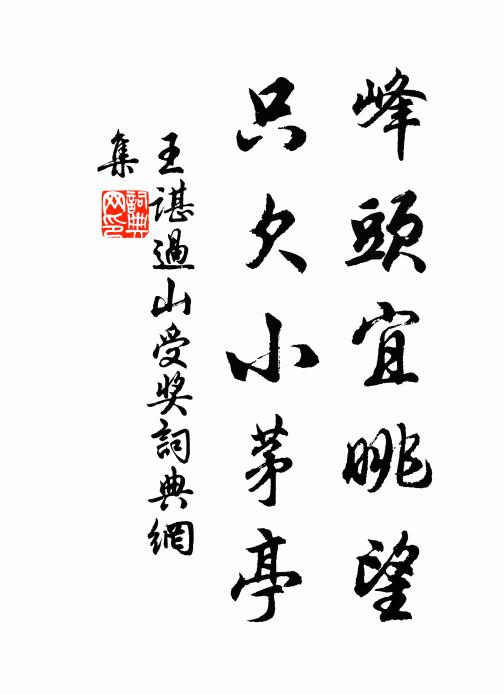 峰頭宜眺望
只欠小茅亭
王諶過山受奖詞典網
集
詞典
网印